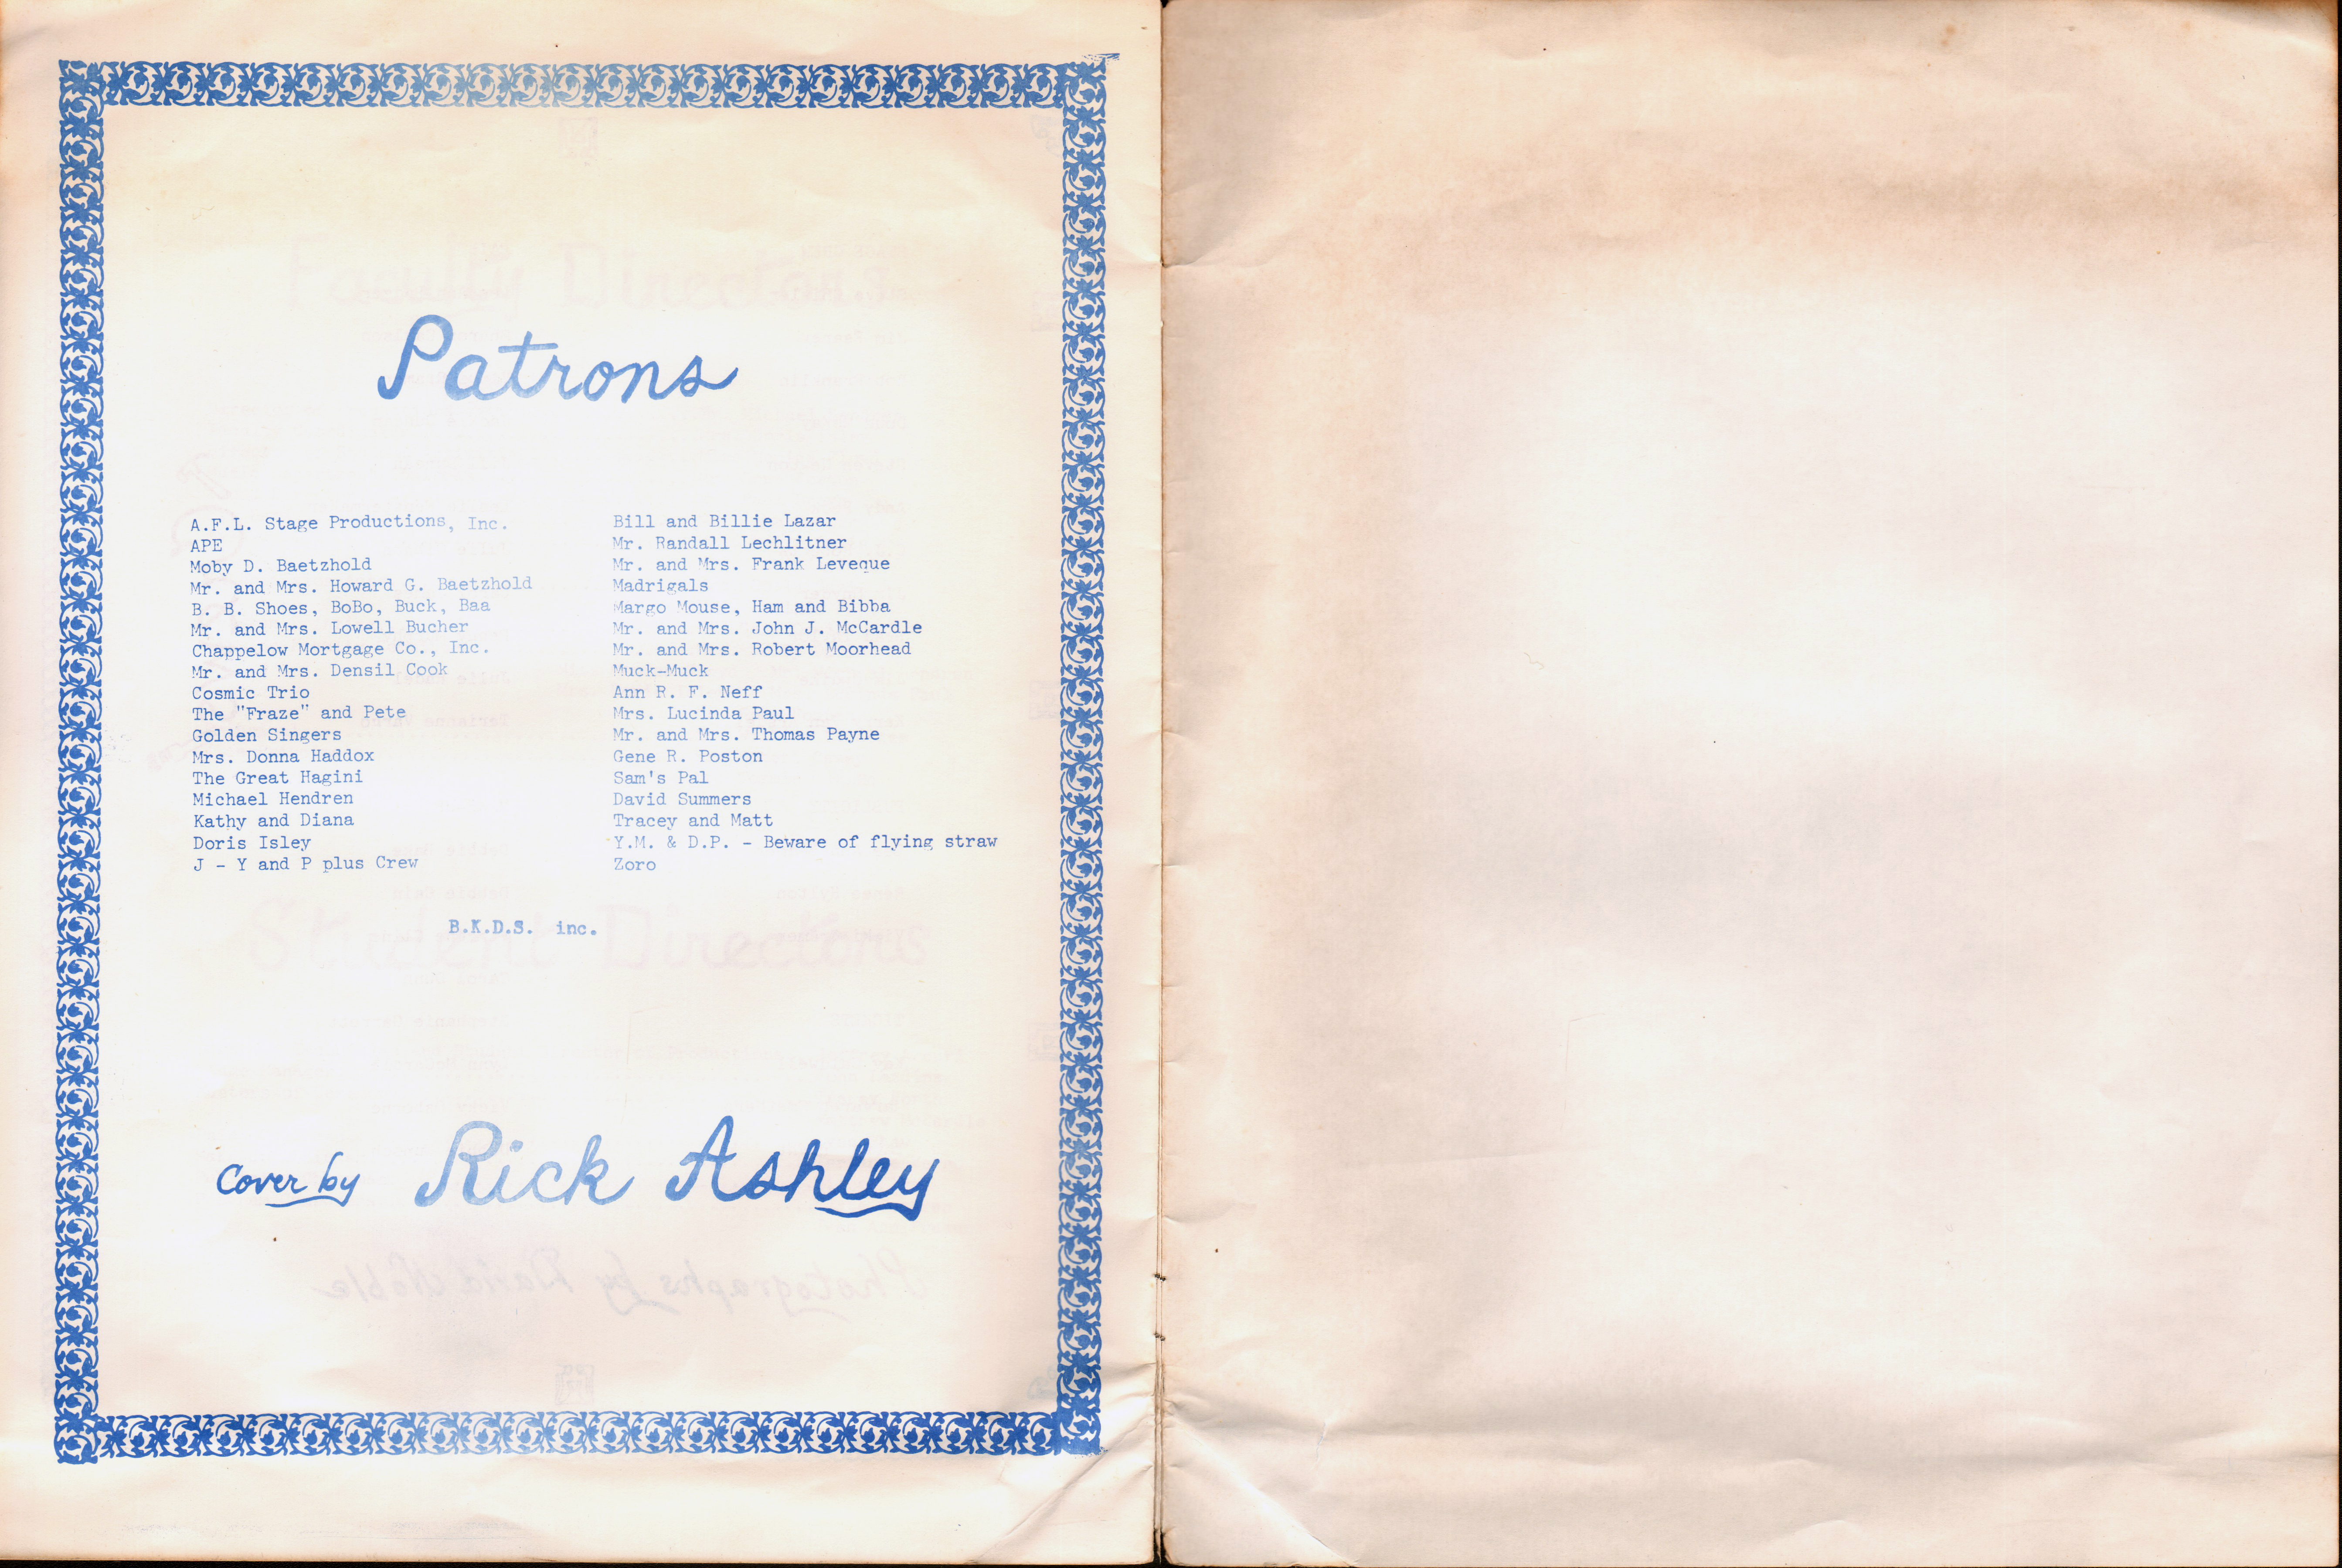 Patrons
A.F.L. Stage Productions, Inc.
APE
Moby D. Baetzhold
Mr. and Mrs. Howard G. Baetzhold
B. B. Shoes, BoBo, Buck, Baa
Mr. and Mrs. Lowell Bucher
Chappelow Mortgage Co., Inc.
Mr. and Mrs. Densil Cook
Cosmic Trio
The "Fraze" and Pete
Golden Singers
Mrs. Donna Haddox
The Great Hagini
Michael Hendren
Kathy and Diana
Doris Isley
J - Y and P plus Crew
Bill and Billie Lazar
Mr. Randall Lechlitner
Mr. and Mrs. Frank Leveque
Madrigals
Margo Mouse, Ham and Bibba
Mr. and Mrs. John J. McCardle
Mr. and Mrs. Robert Moorhead
Muck-Muck
Ann R. F. Neff
Mrs. Lucinda Paul
Mr. and Mrs. Thomas Payne
Gene R. Poston
Sam's Pal
David Summers
Tracey and Matt
Y.M. & D.P. - Beware of flying straw
Zoro
B.K.D.S. inc.
Cover by Rick Ashley